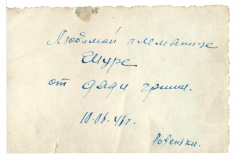 Любимой племянице
Шуре
от дяди Гриши.
Ровеньки.